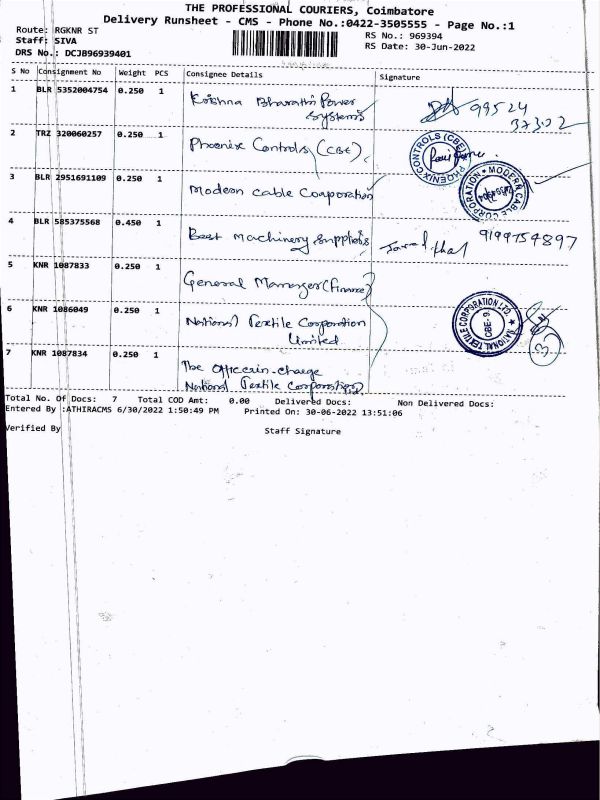 THE PROFESSIONAL COURIERS, Coimbatore
Delivery Runsheet - CMS - Phone No.:0422-3505555 - Page No.:1
Route: RGKNR ST
RS No.: 969394
Staff: SIVA
RS Date: 30-Jun-2022
DRS No.: DCJB96939401
S No Consignment No Weight PCS Consignee Details Signature
1 BLR 5352004754 0.250 1 Krishna Bharathi Power
Systems
99524
37302
2 TRZ 320060257 0.250 1 Phoenix Controls (CBE)
PHOENIX CONTROLS (CBE)
3 BLR 2951691109 0.250 1 Modern Cable Corporation
MODERN CABLE CORPORATION
4 BLR 585375568 0.450 1 Best Machinery Suppliers
9199754897
5 KNR 1087833 0.250 1 General Manager (Finance)
6 KNR 1086049 0.250 1 National Textile Corporation
Limited
NATIONAL TEXTILE CORPORATION LTD. CBE-9
3
7 KNR 1087834 0.250 1 The Officer in-charge
National Textile Corporation
Total No. Of Docs: 7 Total COD Amt: 0.00 Delivered Docs: Non Delivered Docs:
Entered By :ATHIRACMS 6/30/2022 1:50:49 PM Printed On: 30-06-2022 13:51:06
Verified By Staff Signature